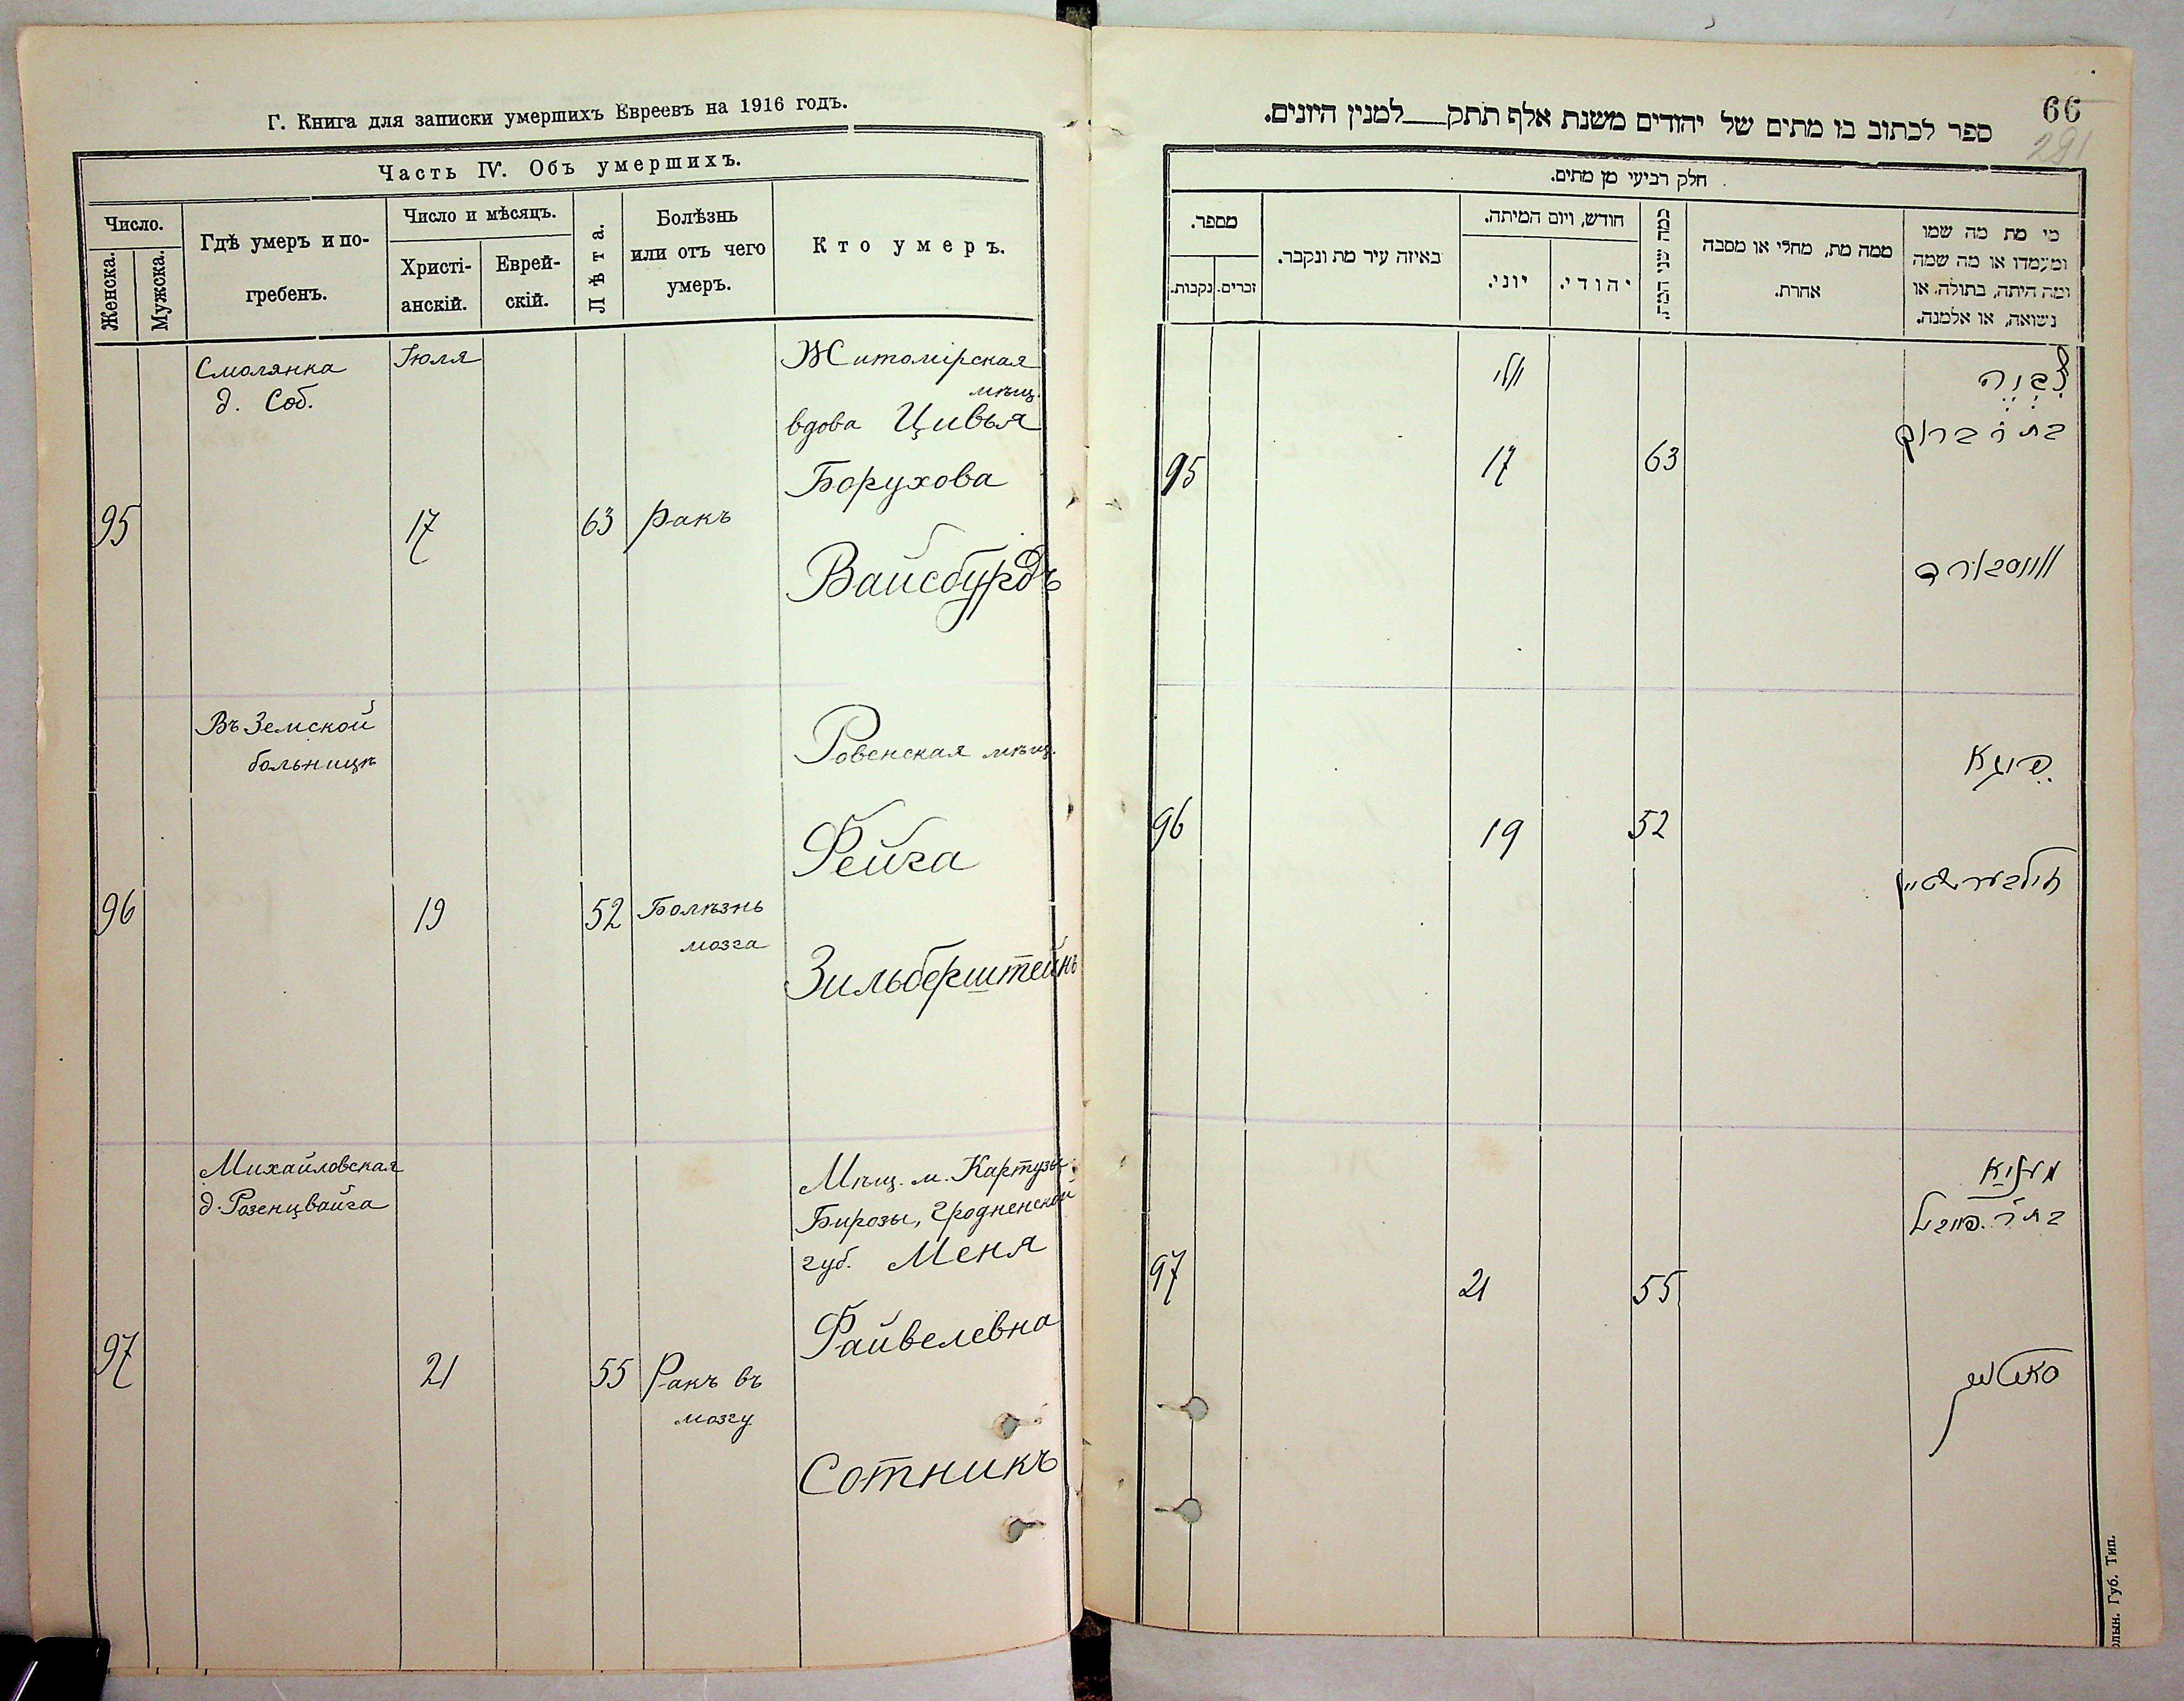 Г. Книга для записки умершихъ Евреевъ на 1916 годъ.
Часть IV. Объ умершихъ.
Число.
Женска.
Мужска.
Гдѣ умеръ и по-
гребенъ.
Число и мѣсяцъ.
Христі-
анскій.
Еврей-
скій.
Лѣта.
Болѣзнь
или отъ чего
умеръ.
Кто умеръ.
95
Смолянка
д. Соб.
Іюля
17
63
ракъ
Житомірская
мѣщ.
вдова Цивья
Борухова
Вайсбурдъ
96
Въ Земской
больницѣ
19
52
Болѣзнь
мозга
Ровенская мѣщ.
Фейга
Зильберштейнъ
97
Михайловская
д. Розенцвайга
21
55
Ракъ въ
мозгу
Мѣщ. м. Картузы
Бирозы, Гродненской
губ. Меня
Файвелевна
Сотникъ
66
291
ספר לכתוב בו מתים של יהודים משנת אלף תתק___למנין היונים.
חלק רביעי מן מתים.
מספר.
נקבות.
זכרים.
באיזה עיר מת ונקבר.
חודש, ויום המיתה.
יוני.
יהודי.
כמה שני המת.
ממה מת, מחלי או מסבה
אחרת.
מי מת מה שמו
ומעמדו או מה שמה
ומה היתה, בתולה, או
נשואה, או אלמנה.
95
יולי
17
63
צִבְיָה
בת ר' ברוך
ווייסבורד
96
19
52
פייגא
זילבערשטיין
97
21
55
מעניא
בת ר' פייבל
סאטניק
Губ. Тип.